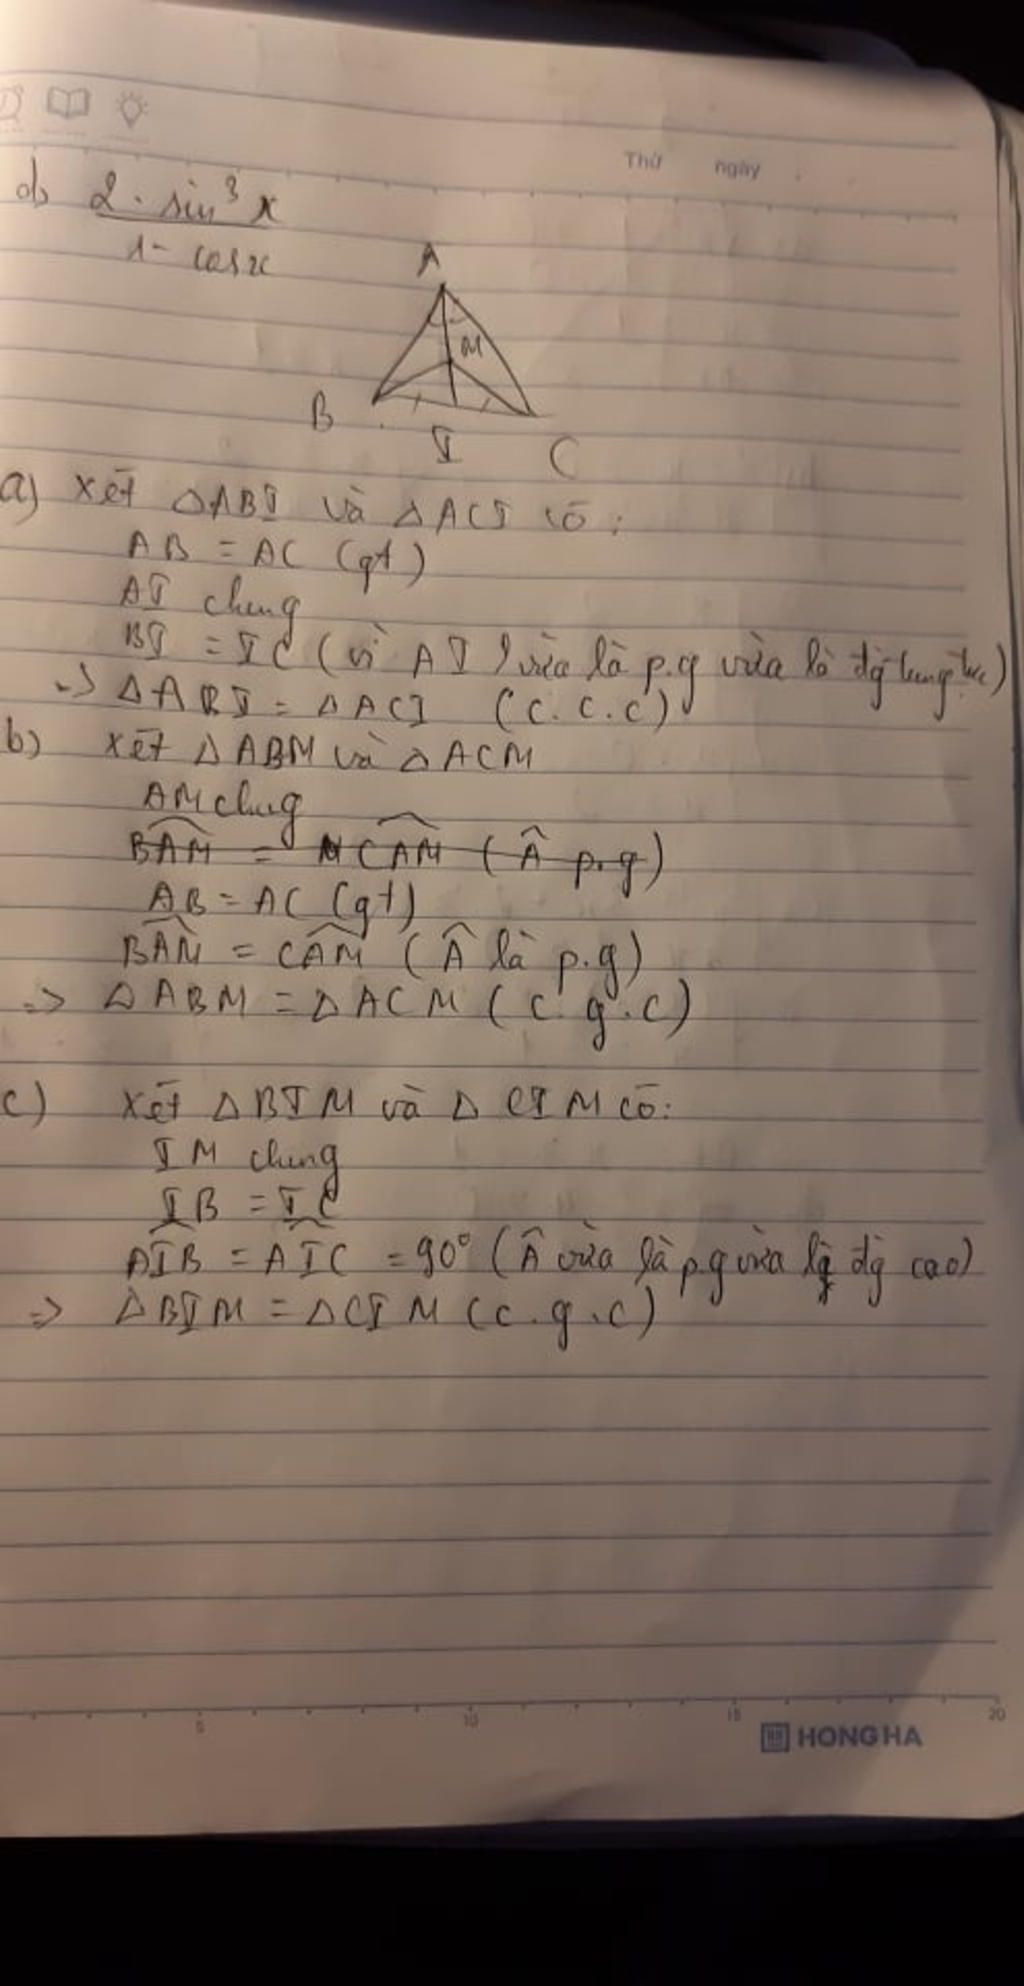 Thứ ngày
d) 2 . sin³x
1 - cosx
A
M
B
I
C
a) Xét △ABI và △ACI có:
AB = AC (gt)
AI chung
BI = IC (vì AI vừa là p.g vừa là đg trung trực)
=> △ABI = △ACI (c.c.c)
b) Xét △ABM và △ACM
AM chung
BAM = CAM (Â p.g)
AB = AC (gt)
BAM = CAM (Â là p.g)
=> △ABM = △ACM (c.g.c)
c) Xét △BIM và △CIM có:
IM chung
IB = IC
AIB = AIC = 90° (Â vừa là p.g vừa là đg cao)
=> △BIM = △CIM (c.g.c)
5 10 15 20
HONG HA